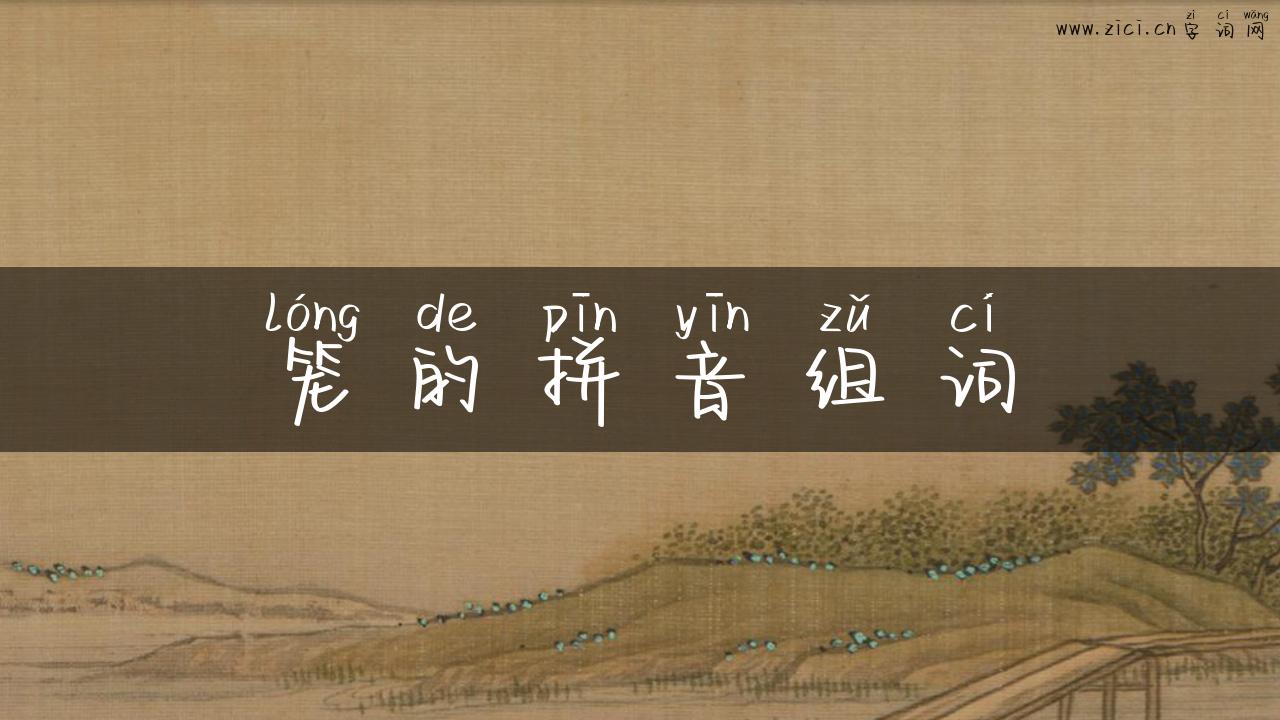 zì cí wǎng
www.zici.cn字词网
lóng de pīn yīn zǔ cí
笼的拼音组词